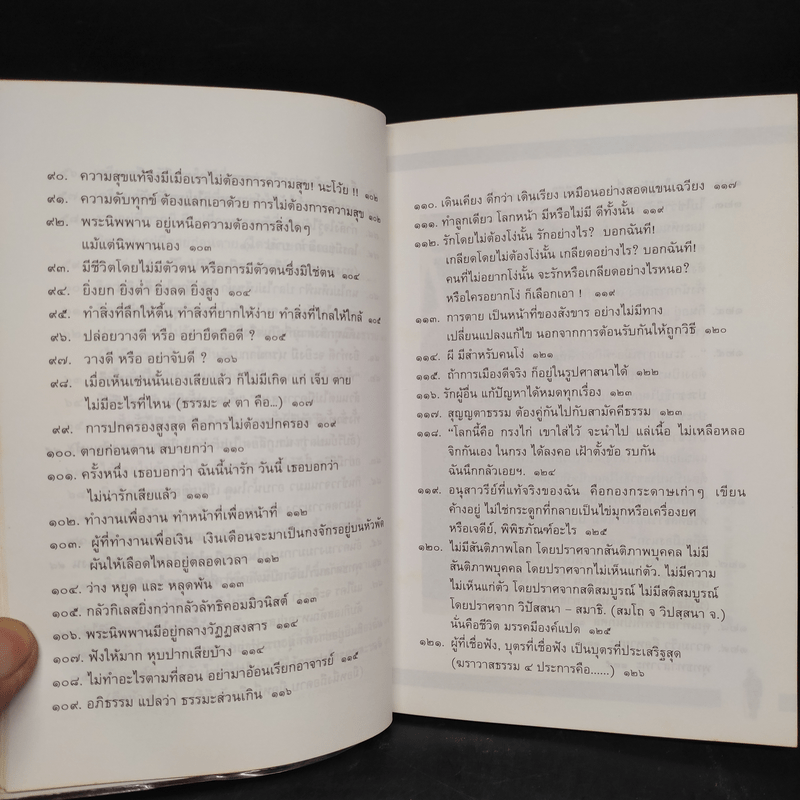 ๙๐. ความสุขแท้จึงมีเมื่อเราไม่ต้องการความสุข! นะโว้ย !! ๑๐๒
๙๑. ความดับทุกข์ ต้องแลกเอาด้วย การไม่ต้องการความสุข ๑๐๒
๙๒. พระนิพพาน อยู่เหนือความต้องการสิ่งใดๆ
แม้แต่นิพพานเอง ๑๐๓
๙๓. มีชีวิตโดยไม่มีตัวตน หรือการมีตัวตนซึ่งมิใช่ตน ๑๐๔
๙๔. ยิ่งยก ยิ่งต่ำ ยิ่งลด ยิ่งสูง ๑๐๔
๙๕. ทำสิ่งที่ลึกให้ตื้น ทำสิ่งที่ยากให้ง่าย ทำสิ่งที่ไกลให้ใกล้ ๑๐๕
๙๖. ปล่อยวางดี หรือ อย่ายึดถือดี ? ๑๐๕
๙๗. วางดี หรือ อย่าจับดี ? ๑๐๖
๙๘. เมื่อเห็นเช่นนั้นเองเสียแล้ว ก็ไม่มีเกิด แก่ เจ็บ ตาย
ไม่มีอะไรที่ไหน (ธรรมะ ๙ ตา คือ...) ๑๐๗
๙๙. การปกครองสูงสุด คือการไม่ต้องปกครอง ๑๐๙
๑๐๐. ตายก่อนตาน สบายกว่า ๑๑๐
๑๐๑. ครั้งหนึ่ง เธอบอกว่า ฉันนี้น่ารัก วันนี้ เธอบอกว่า
ไม่น่ารักเสียแล้ว ๑๑๑
๑๐๒. ทำงานเพื่องาน ทำหน้าที่เพื่อหน้าที่ ๑๑๒
๑๐๓. ผู้ที่ทำงานเพื่อเงิน เงินเดือนจะมาเป็นกงจักรอยู่บนหัวพัด
ผันให้เลือดไหลอยู่ตลอดเวลา ๑๑๒
๑๐๔. ว่าง หยุด และ หลุดพ้น ๑๑๓
๑๐๕. กลัวกิเลสยิ่งกว่ากลัวลัทธิคอมมิวนิสต์ ๑๑๓
๑๐๖. พระนิพพานมีอยู่กลางวัฏฏสงสาร ๑๑๔
๑๐๗. ฟังให้มาก หุบปากเสียบ้าง ๑๑๔
๑๐๘. ไม่ทำอะไรตามที่สอน อย่ามาอ้อนเรียกอาจารย์ ๑๑๕
๑๐๙. อภิธรรม แปลว่า ธรรมะส่วนเกิน ๑๑๖
๑๑๐. เดินเคียง ดีกว่า เดินเรียง เหมือนอย่างสอดแขนเฉวียง ๑๑๗
๑๑๑. ทำลูกเดียว โลกหน้า มีหรือไม่มี ดีทั้งนั้น ๑๑๙
๑๑๒. รักโดยไม่ต้องโง่นั้น รักอย่างไร? บอกฉันที!
เกลียดโดยไม่ต้องโง่นั้น เกลียดอย่างไร? บอกฉันที!
คนที่ไม่อยากโง่นั้น จะรักหรือเกลียดอย่างไรหนอ?
หรือใครอยากโง่ ก็เลือกเอา ! ๑๑๙
๑๑๓. การตาย เป็นหน้าที่ของสังขาร อย่างไม่มีทาง
เปลี่ยนแปลงแก้ไข นอกจากการต้อนรับกันให้ถูกวิธี ๑๒๐
๑๑๔. ผี มีสำหรับคนโง่ ๑๒๑
๑๑๕. ถ้าการเมืองดีจริง ก็อยู่ในรูปศาสนาได้ ๑๒๒
๑๑๖. รักผู้อื่น แก้ปัญหาได้หมดทุกเรื่อง ๑๒๓
๑๑๗. สุญญตาธรรม ต้องคู่กันไปกับสามัคคีธรรม ๑๒๓
๑๑๘. "โลกนี้คือ กรงไก่ เขาใส่ไว้ จะนำไป แล่เนื้อ ไม่เหลือหลอ
จิกกันเอง ในกรง ได้ลงคอ เฝ้าตั้งข้อ รบกัน
ฉันนึกกลัวเอยฯ. ๑๒๔
๑๑๙. อนุสาวรีย์ที่แท้จริงของฉัน คือกองกระดาษเก่าๆ เขียน
ค้างอยู่ ไม่ใช่กระดูกที่กลายเป็นไข่มุกหรือเครื่องยศ
หรือเจดีย์, พิพิธภัณฑ์อะไร ๑๒๕
๑๒๐. ไม่มีสันติภาพโลก โดยปราศจากสันติภาพบุคคล ไม่มี
สันติภาพบุคคล โดยปราศจากไม่เห็นแก่ตัว. ไม่มีความ
ไม่เห็นแก่ตัว โดยปราศจากสติสมบูรณ์ ไม่มีสติสมบูรณ์
โดยปราศจาก วิปัสสนา – สมาธิ. (สมโถ จ วิปสฺสนา จ.)
นั่นคือชีวิต มรรคมีองค์แปด ๑๒๕
๑๒๑. ผู้ที่เชื่อฟัง, บุตรที่เชื่อฟัง เป็นบุตรที่ประเสริฐสุด
(ฆราวาสธรรม ๔ ประการคือ......) ๑๒๖